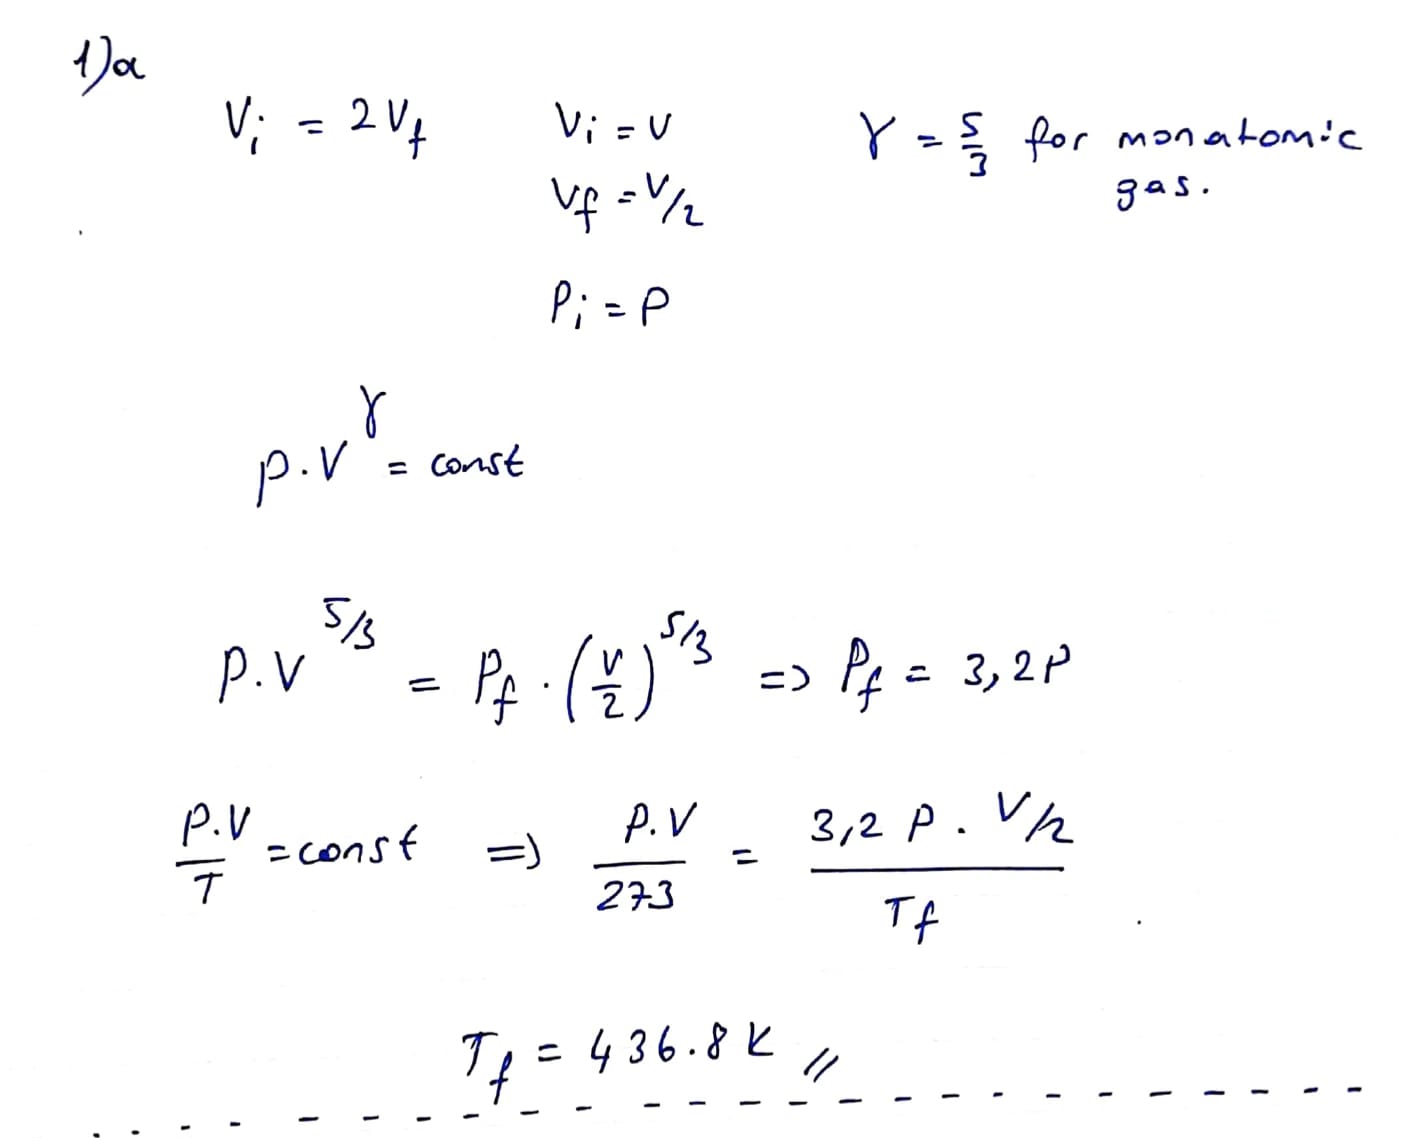 1)a
Vi = 2Vf Vi = V γ = 5/3 for monatomic
Vf = V/2 gas.
Pi = P
P.V^γ = const
P.V^5/3 = Pf . (V/2)^5/3 => Pf = 3,2P
P.V/T = const => P.V/273 = 3,2 P . V/2 / Tf
Tf = 436.8 K //